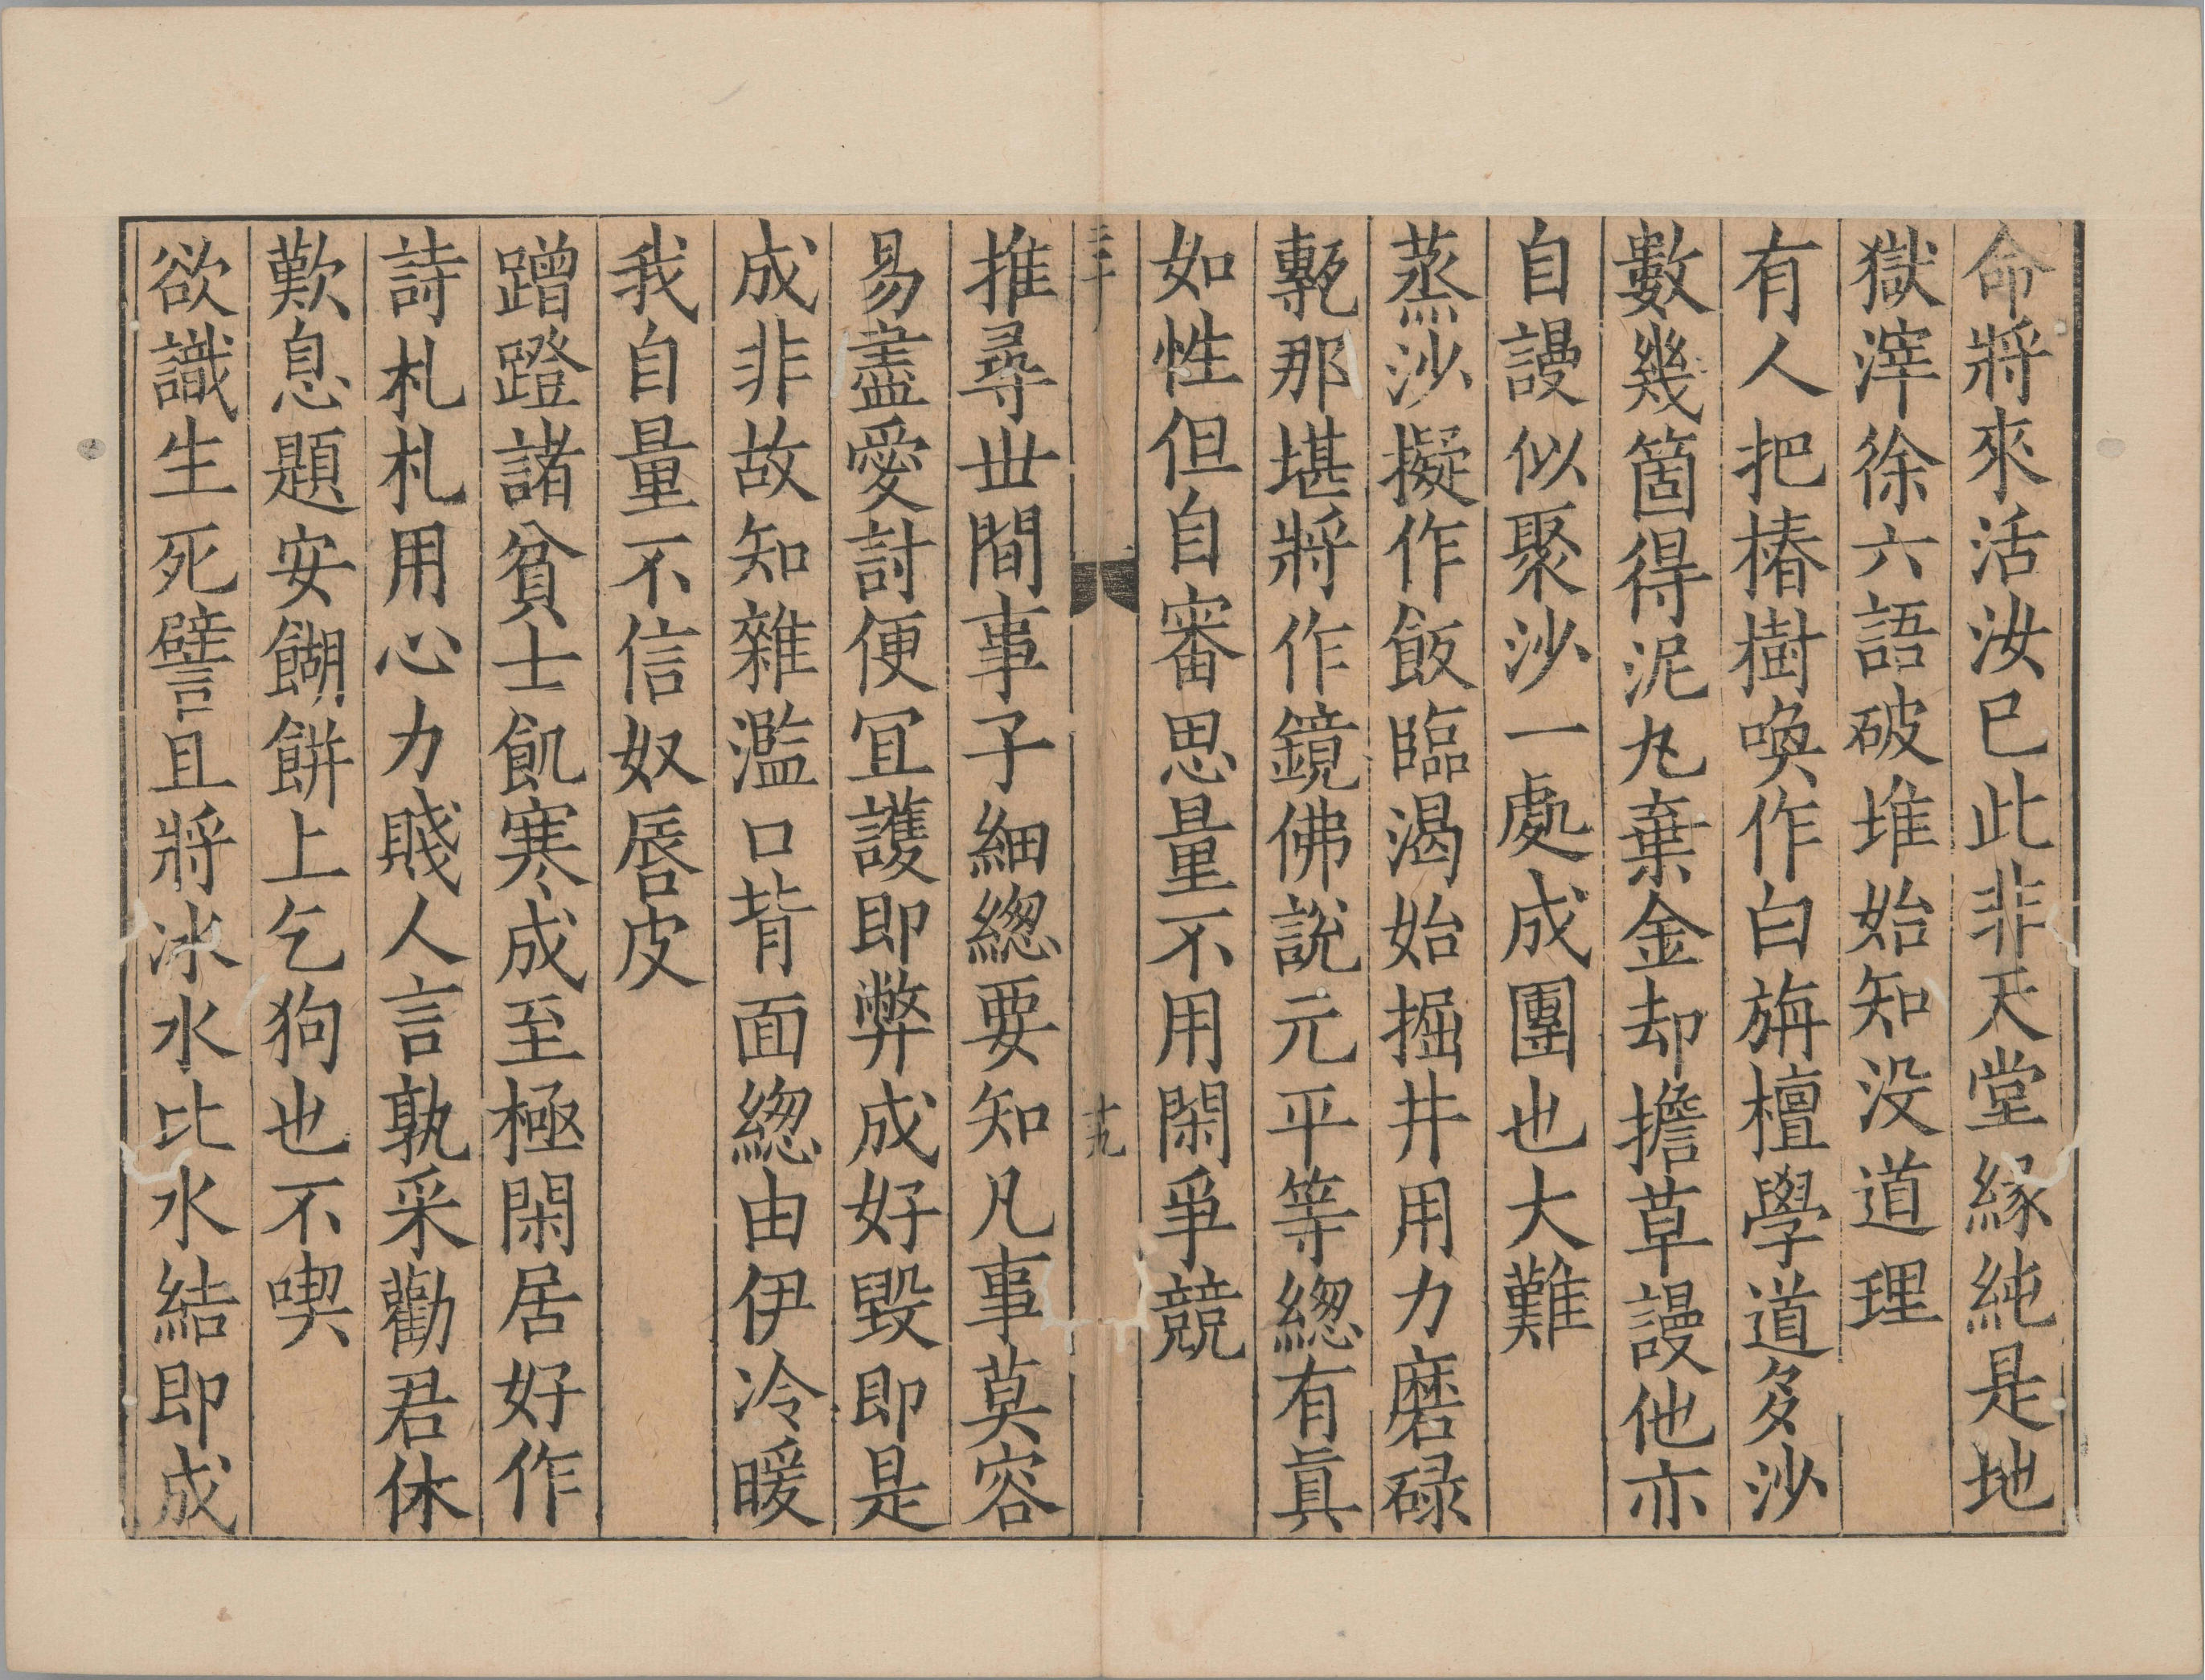 命將來活汝已此非天堂緣純是地
獄滓徐六語破堆始知没道理
有人把椿樹喚作白旃檀學道多沙
數幾箇得泥丸棄金却擔草謾他亦
自謾似聚沙一處成團也大難
蒸沙擬作飯臨渴始掘井用力磨碌
甎那堪將作鏡佛說元平等緫有真
如性但自審思量不用閑爭競
三十
十九
推尋丗間事子細緫要知凡事莫容
易盡愛討便冝護即弊成好毀即是
成非故知雜濫口背面緫由伊冷暖
我自量不信奴唇皮
蹭蹬諸貧士飢寒成至極閑居好作
詩札札用心力賤人言孰采勸君休
歎息題安餬餅上乞狗也不喫
欲識生死譬且將冰水比水結即成